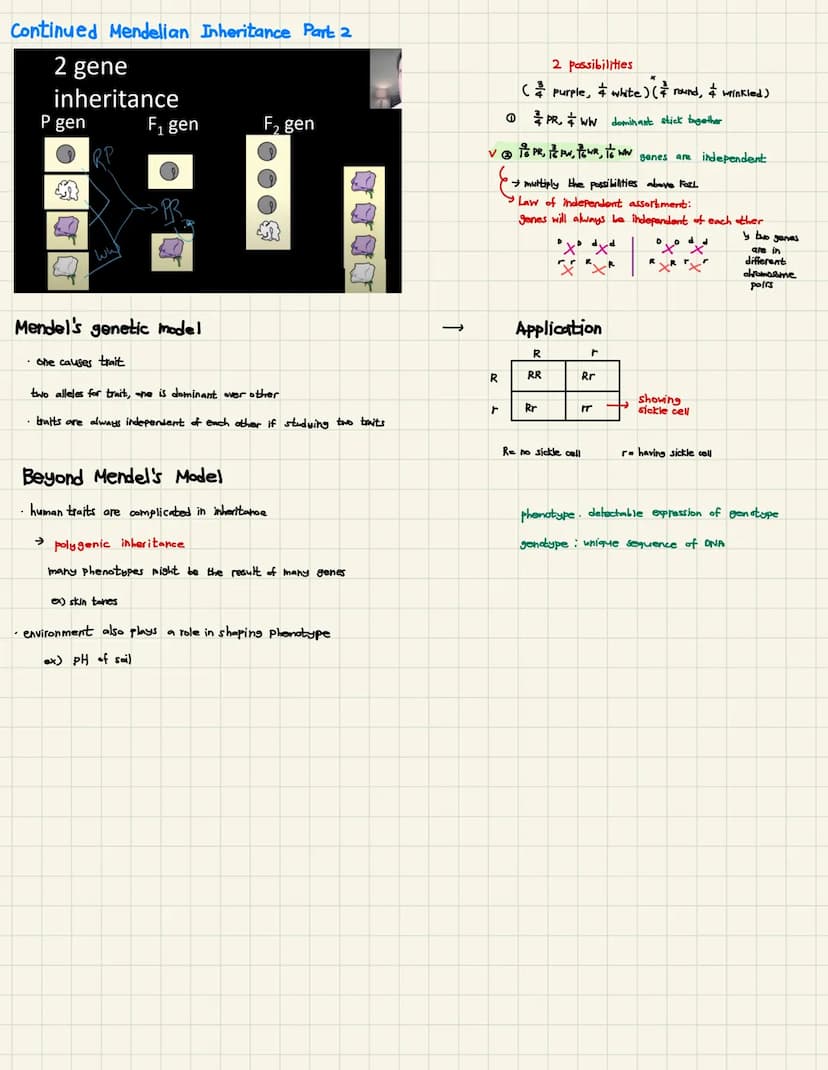 Continued Mendelian Inheritance Part 2
2 gene
inheritance
P gen
F1 gen
F2 gen
RP
PR
WW
2 possibilities
(3/4 purple, 1/4 white) x (3/4 round, 1/4 wrinkled)
① 3/4 PR, 1/4 WW dominant stick together
V ② 9/16 PR, 3/16 PW, 3/16 WR, 1/16 WW genes are independent
→ multiply the possibilities above FOIL
Law of independent assortment:
genes will always be independent of each other
D D d d
r r R R
D D d d
R R r r
↳ two genes
are in
different
chromosome
pairs
Mendel's genetic model
· one causes trait
two alleles for trait, one is dominant over other
· traits are always independent of each other if studying two traits
→ Application
R r
R RR Rr
r Rr rr → showing
sickle cell
R= no sickle cell r= having sickle cell
Beyond Mendel's Model
· human traits are complicated in inheritance
→ polygenic inheritance
many phenotypes might be the result of many genes
ex) skin tones
· environment also plays a role in shaping phenotype
ex) pH of soil
phenotype: detectable expression of genotype
genotype: unique sequence of DNA